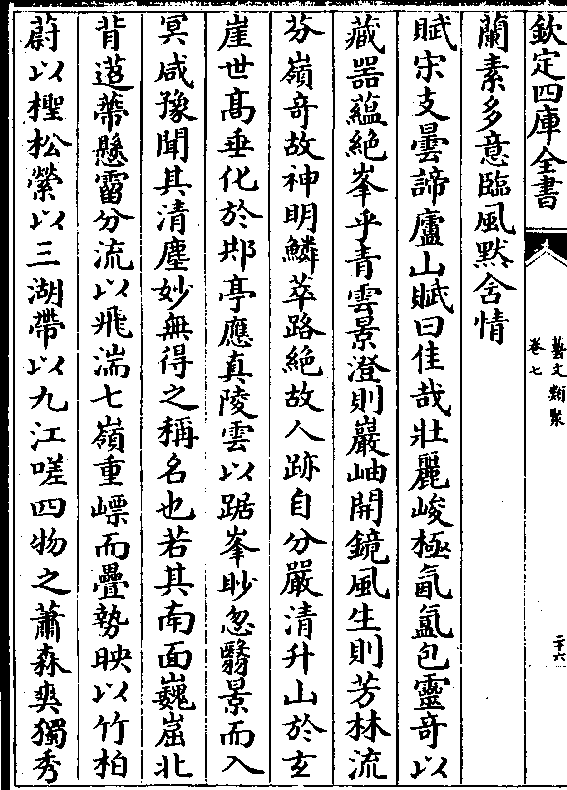 欽定四庫全書
藝文類聚
卷七
二十六
蘭素多意臨風黙含情
賦宋支曇諦廬山賦曰佳哉壯麗峻極氤氳包靈奇以
藏器蘊絶峯乎青雲景澄則巖岫開鏡風生則芳林流
芬嶺奇故神明鱗萃路絶故人跡自分嚴清升山於玄
崖世髙垂化於䢼亭應真陵雲以踞峯眇忽翳景而入
冥咸豫聞其清塵妙無得之稱名也若其南面巍崫北
背蕋蔕懸霤分流以飛湍七嶺重嶫而疊勢映以竹柏
蔚以檉松縈以三湖帶以九江嗟四物之蕭森爽獨秀